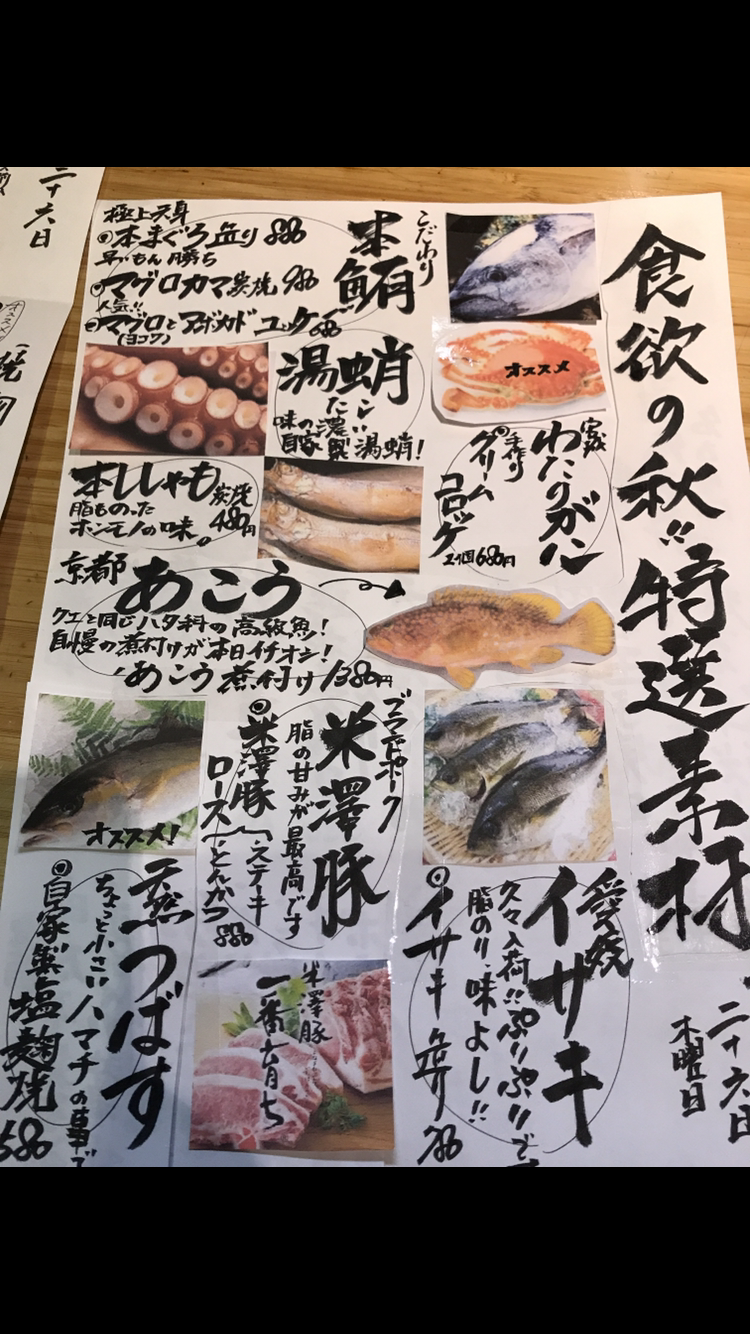 食欲の秋!!特選素材
二十六日
木曜日
こだわり
本鮪
極上天身
本まぐろ造り 880
早いもん勝ち
マグロカマ炭焼 980
人気!!
マグロとアボカドユッケ 680
(ヨコワ)
オススメ
わたりガニ
手作り
クリーム
コロッケ
2個680円
湯蛸
味の濃い
自家製湯蛸!
本ししゃも
炭焼
480円
脂ものった
ホンモノの味。
京都
あこう
クエと同じハタ科の高級魚!
自慢の煮付けが本日イチオシ!
あこう煮付け 1380円
愛媛
イサキ
久々入荷!!ぷりぷりで
脂のり、味よし!!
イサキ造り 780
ブランドポーク
米澤豚
脂の甘みが最高です
米澤豚
ロース
ステーキ
とんかつ
880
米澤豚
一番育ち
オススメ!
天然つばす
ちょっと小さいハマチの事で
自家製塩麹焼
580
二十六日
オススメ
焼